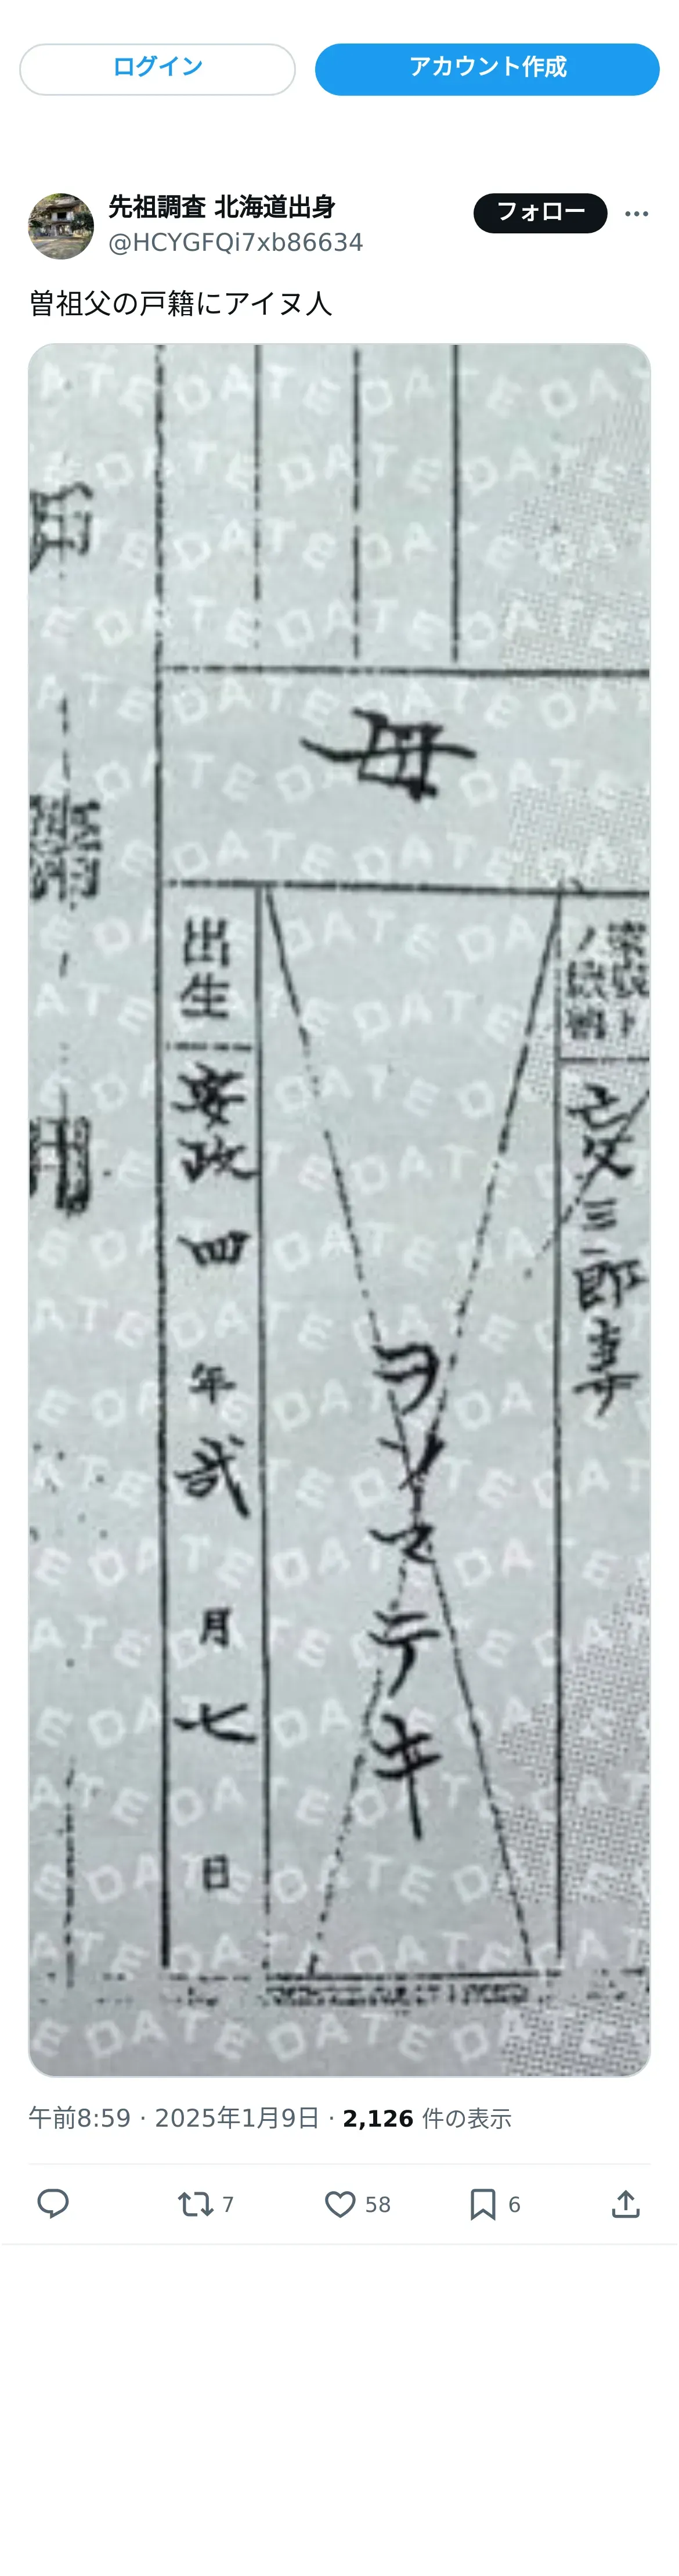 ログイン
アカウント作成
先祖調査 北海道出身
@HCYGFQi7xb86634
フォロー
曽祖父の戸籍にアイヌ人
母
亡父三郎妻
ヲソマテキ
出生
安政四年弐月七日
DATE
午前8:59 · 2025年1月9日 · 2,126 件の表示
7
58
6